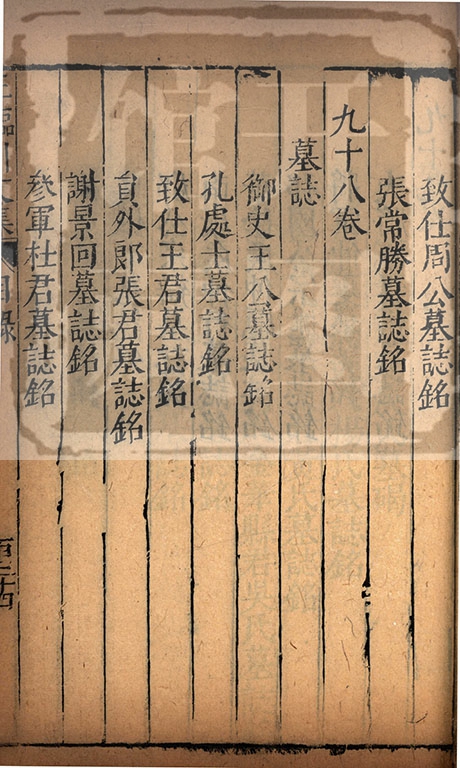 致仕周公墓誌銘
張常勝墓誌銘
九十八卷
墓誌
御史王公墓誌銘
孔處士墓誌銘
致仕王君墓誌銘
員外郎張君墓誌銘
謝景回墓誌銘
叅軍杜君墓誌銘
王臨川文集 目錄